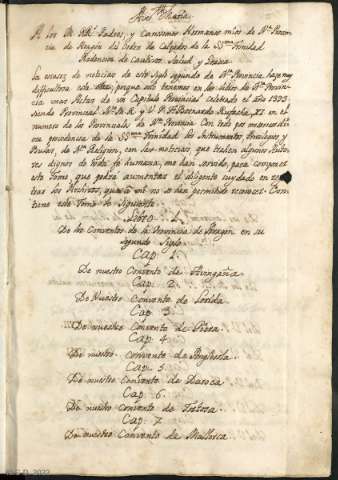 Ave Maria
A los M. RR. Padres, y Carissimos Hermanos mios de Nra Provin
cia de Aragon del Orden de Calzados de la SSma Trinidad
Redencion de Cautivos. Salud y Gracia
La escases de noticias de este Siglo segundo de Nra Provincia haze muy
dificultosa esta obra; porque solo tenemos en los Libros de Nra Provin
cia unas Actas de un Capitulo Provincial celebrado el año 1393.
siendo Provincial Ntro M. R. y V. P. Fr. Bernardo XI en el
numero de los Provinciales de Nra Provincia. Con todo
de la SSma Trinidad los Instrumentos Privilegios, y
Bullas, de Nra Religion, con las noticias, que trahen algunos Auto
res dignos de toda fe humana, me dan para componer
este Tomo, que podrá aumentar el diligente cuydado en
los Archivos, que à mi no se han permitido reconocer. Con
tiene este Tomo lo Siguiente.
Libro 1.
De los Conventos de la Provincia de Aragon en su
segundo Siglo.
Cap. 1.
De nuestro Convento de Avingaña
Cap. 2.
De Nuestro Convento de Lerida.
Cap. 3.
De nuestro Convento de Piera.
Cap. 4.
De nuestro convento de Anglesola.
Cap. 5.
De nuestro Convento de Daroca
Cap. 6.
De nuestro convento de Tortosa.
Cap. 7.
De nuestro Convento de Mallorca